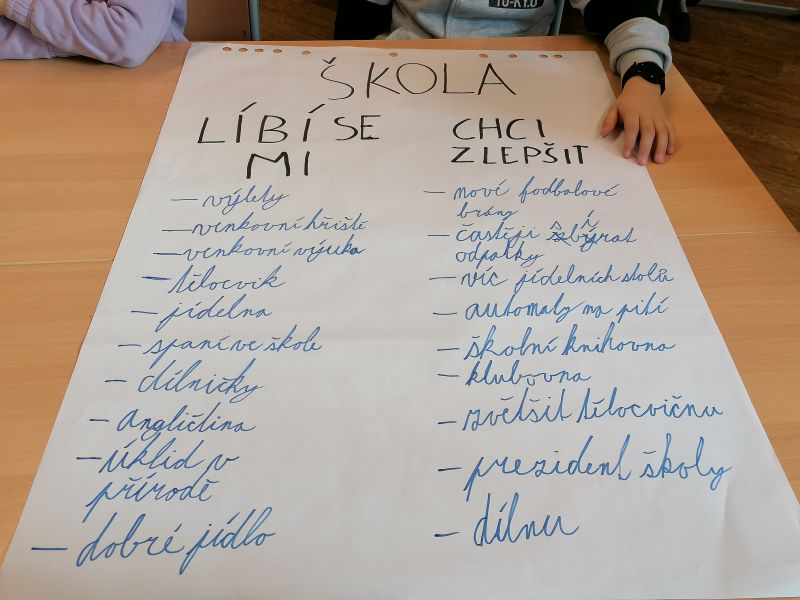 TO-KYO
ŠKOLA
LÍBÍ SE
MI
- výlety
- venkovní hřiště
- venkovní výuka
- tělocvik
- jídelna
- spaní ve škole
- dílničky
- angličtina
- úklid v
přírodě
- dobré jídlo
CHCI
ZLEPŠIT
- nové fodbalové
brány
- častěji sbírat
odpatky
- víc jídelních stolů
- automaty na pití
- školní knihovna
- klubovna
- zvětšit tělocvičnu
- prezident školy
- dílnu